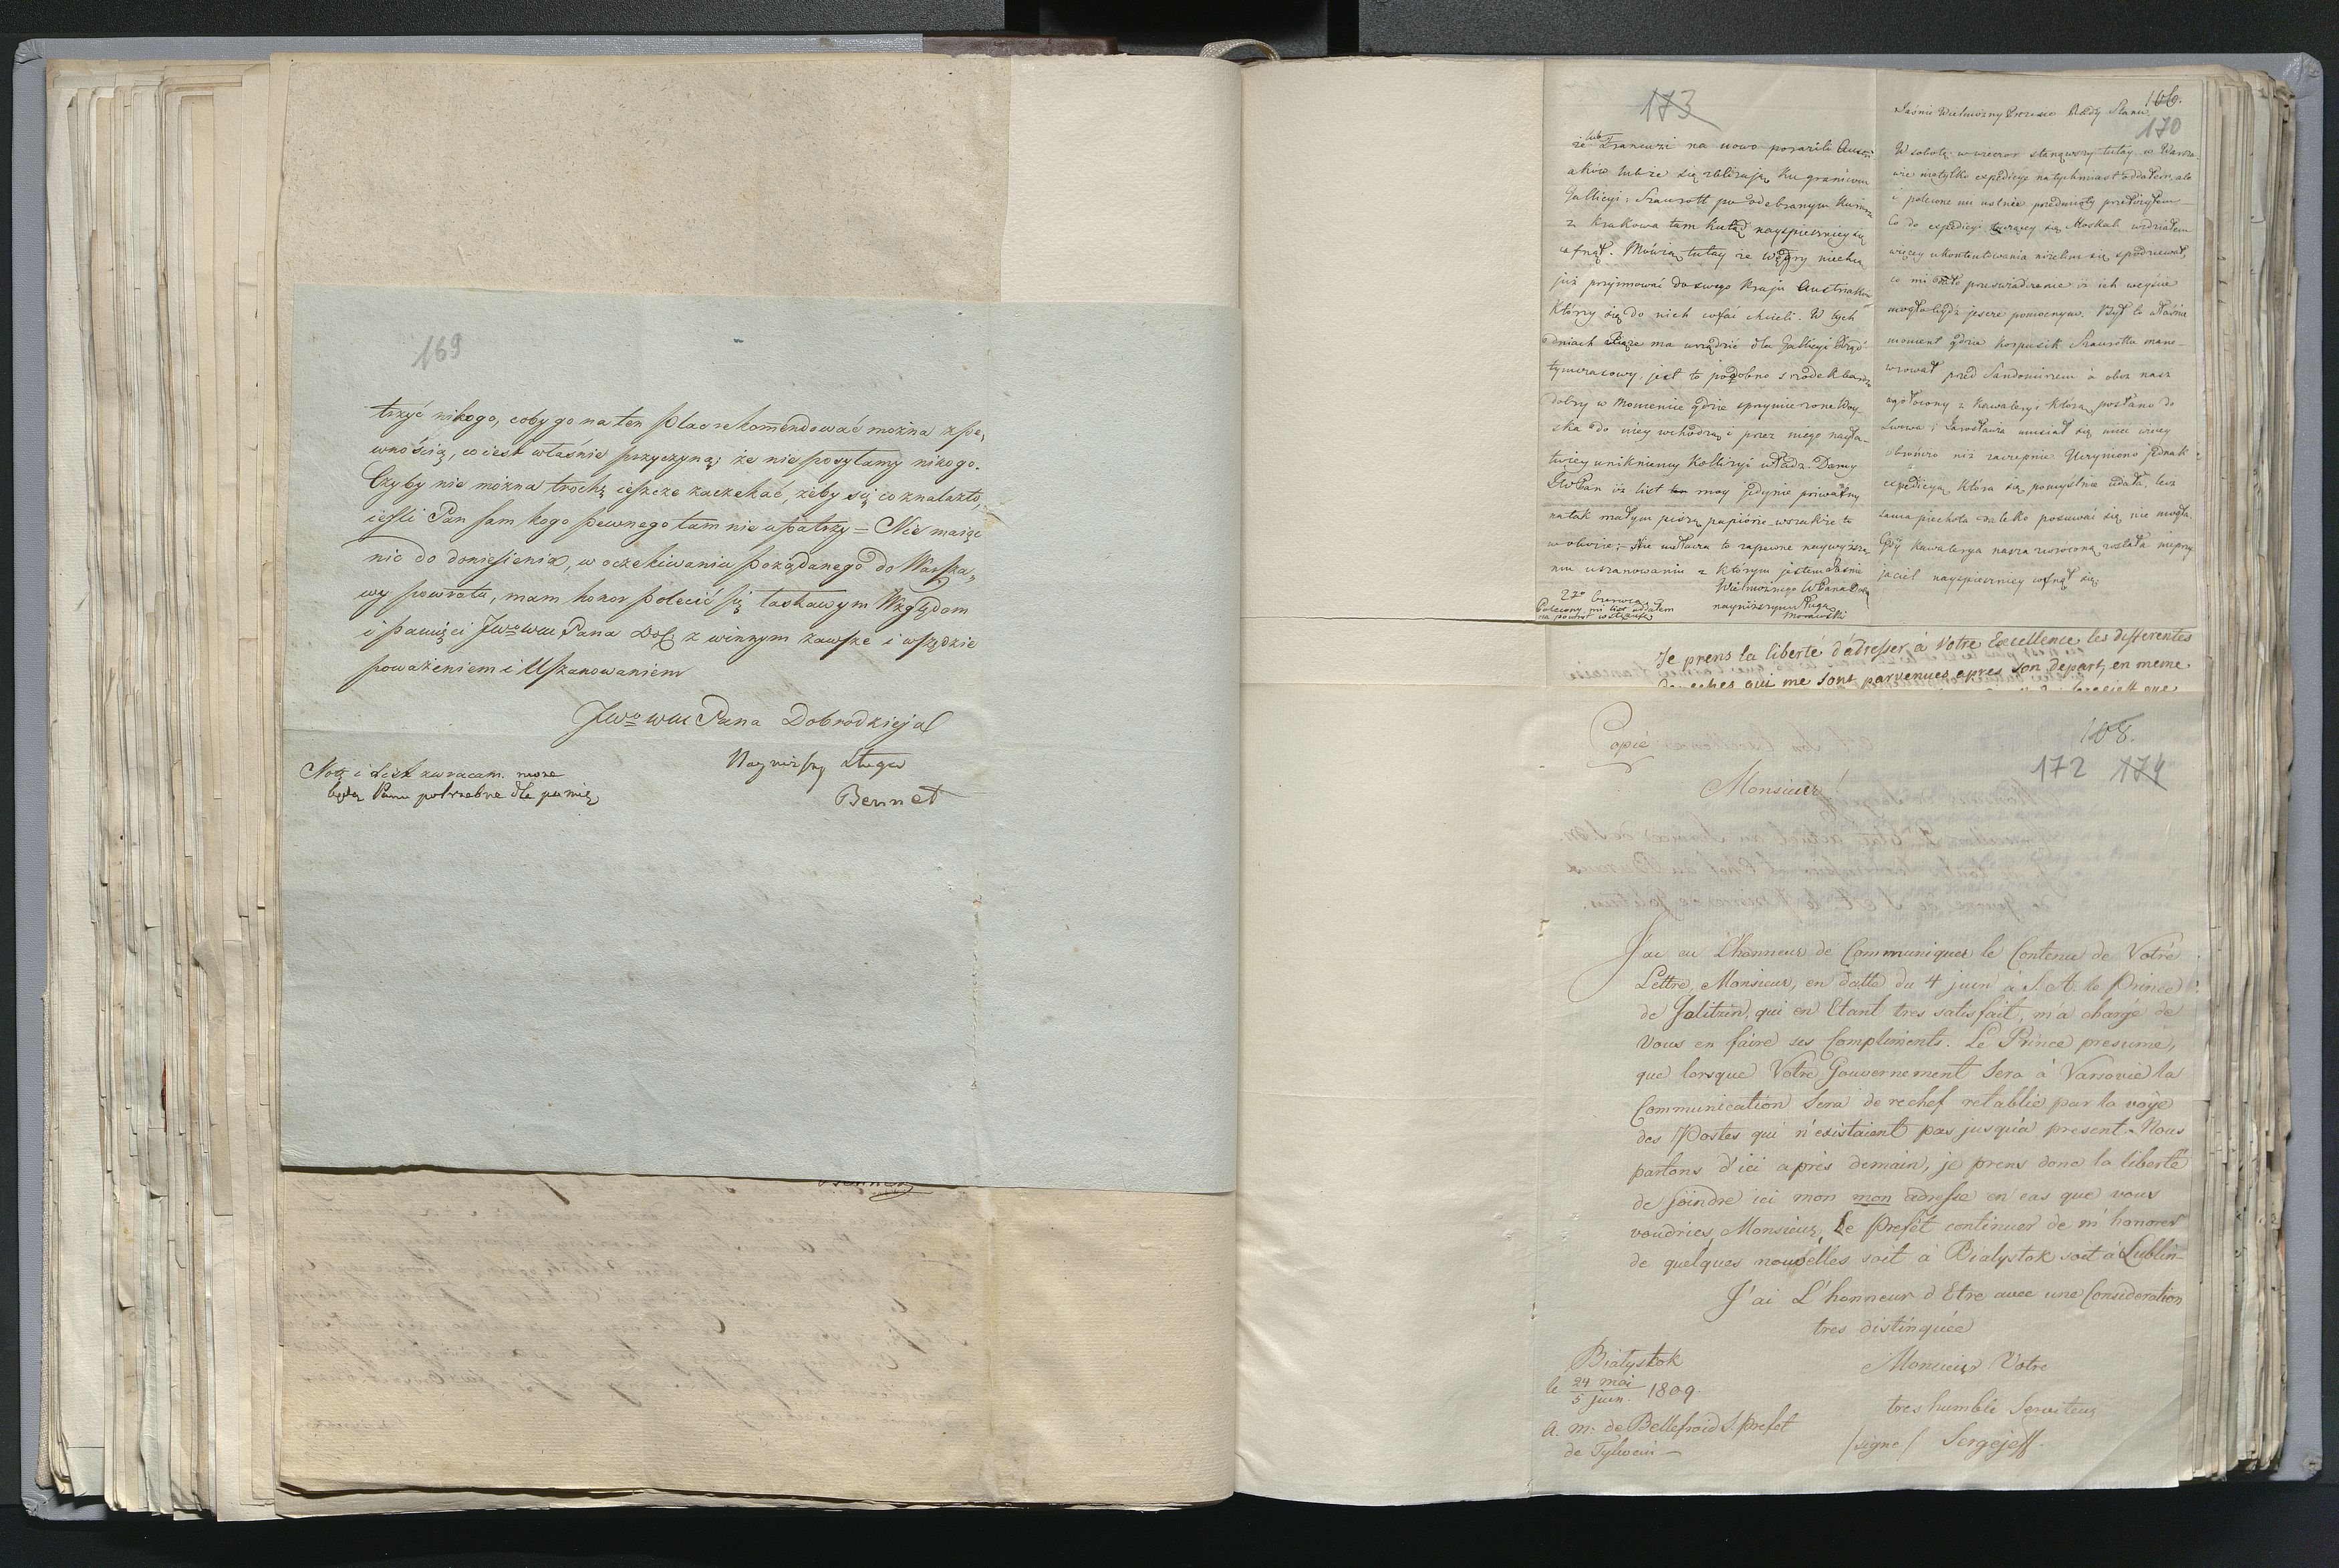 169
trzyć nikogo, coby go na ten plac rekomendować można z pe,
wnością, co iest właśnie przyczyną; że nie posyłamy nikogo.
Czyby nie można trochę ieszcze zaczekać, żeby się co znalazło,
ieśli Pan sam kogo pewnego tam nie upatrzy = Nie maiąc
nic do doniesienia, w oczekiwaniu pożądanego do Warsza,
wy powrotu, mam honor polecić się łaskawym Względom
i pamięci JWo WM Pana Dob z winnym zawsze i wszędzie
poważeniem i Uszanowaniem
JWo WM Pana Dobrodzieja
Nayniższy sługa
Bennet
Notę i list zwracam. może
będą Panu potrzebne dla pamię
173
że lub Francuzi na nowo porazili Austri
aków lub że się zbliżają ku granicom
Gallicyi; Szaurott po odebranym
z Krakowa tam kędy nayspieszniey się
cofnął. Mówią tutay że Węgry niechcą
już przyimować do swego kraju Austriaków
którzy się do nich cofać chcieli. W tych
dniach Xiąże ma urządzić dla Gallicyi Rząd
tymczasowy, jest to podobno srodek bardzo
dobry w momencie gdzie sprzymierzone Woy-
ska do niey wchodzą i przez niego nayła-
twiey unikniemy kollizyi władz. Daruy
JWPan iż list ten moy jedynie priwatny
na tak małym piszę papiórze wszakże to
w obozie; Nie uwłacza to zapewne naywyższe
mu uszanowaniu z którym jestem Jaśnie
Wielmożnego WPana Dob
nayniższym sługą
Morawski
27o Czerwca
Polecony mi list oddałem
na powrót
166.
170
Jaśnie Wielmożny Prezesie Rady Stanu
W sobotę w wieczor stanąwszy tutay w Warsza-
wie nietylko expedicye natychmiast oddałem, ale
i polecone mi ustnie przedmioty przełożyłem
Co do expedicyi tyczącey się Moskali widziałem
więcey ukontentowania niżelim się spodziewał,
co mi dało przeświadczenie iż ich weyście
mogło bydź jeszcze pomocnym. Był to właśnie
moment gdzie korpusik Szaurotta mane-
wrował pred Sandomirzem a oboz nasz
ogołocony z kawaleryi którą posłano do
Lwowa i Jarosławia musiał się mieć więcey
obrończo niż zaczepnie. Uczyniono jednak
expedicyą która się pomyślnie udała, lecz
sama piechota daleko posuwać się nie mogła.
Gdy kawalerya nasza zwróconą została nieprzy
jaciel nayspiesznicy cofnął się;
Je prens la liberté d'adresser à Votre Excellence les differentes
depeches qui me sont parvenues apres son depart, en meme
Copie
168.
172 174
Monsieur!
J'ai eu L'honneur de Communiquer le Contenu de Votre
Lettre, Monsieur, en datte du 4 juin à S. A. le Prince
de Galitzin, qui en Etant tres satisfait, m'a chargé de
Vous en faire ses Compliments. Le Prince presume,
que lorsque Votre Gouvernement sera à Varsovie la
Communication sera de rechef retablie par la voye
des Postes qui n'existaient pas jusqu'a present. Nous
partons d'ici après demain, je prens donc la liberté
de joindre ici mon mon adresse en cas que vous
voudries, Monsieur, Le Prefet continuer de m'honorer
de quelques nouvelles soit à Bialystok soit à Lublin
J'ai L'honneur d'Etre avec une Consideration
tres distinquée
Monsieur Votre
tres humble Serviteur
/signe/ Sergejeff.
Bialystok
le 24 mai
5 juin. 1809.
A. M. de Bellefroid S. prefet
de Tykocin